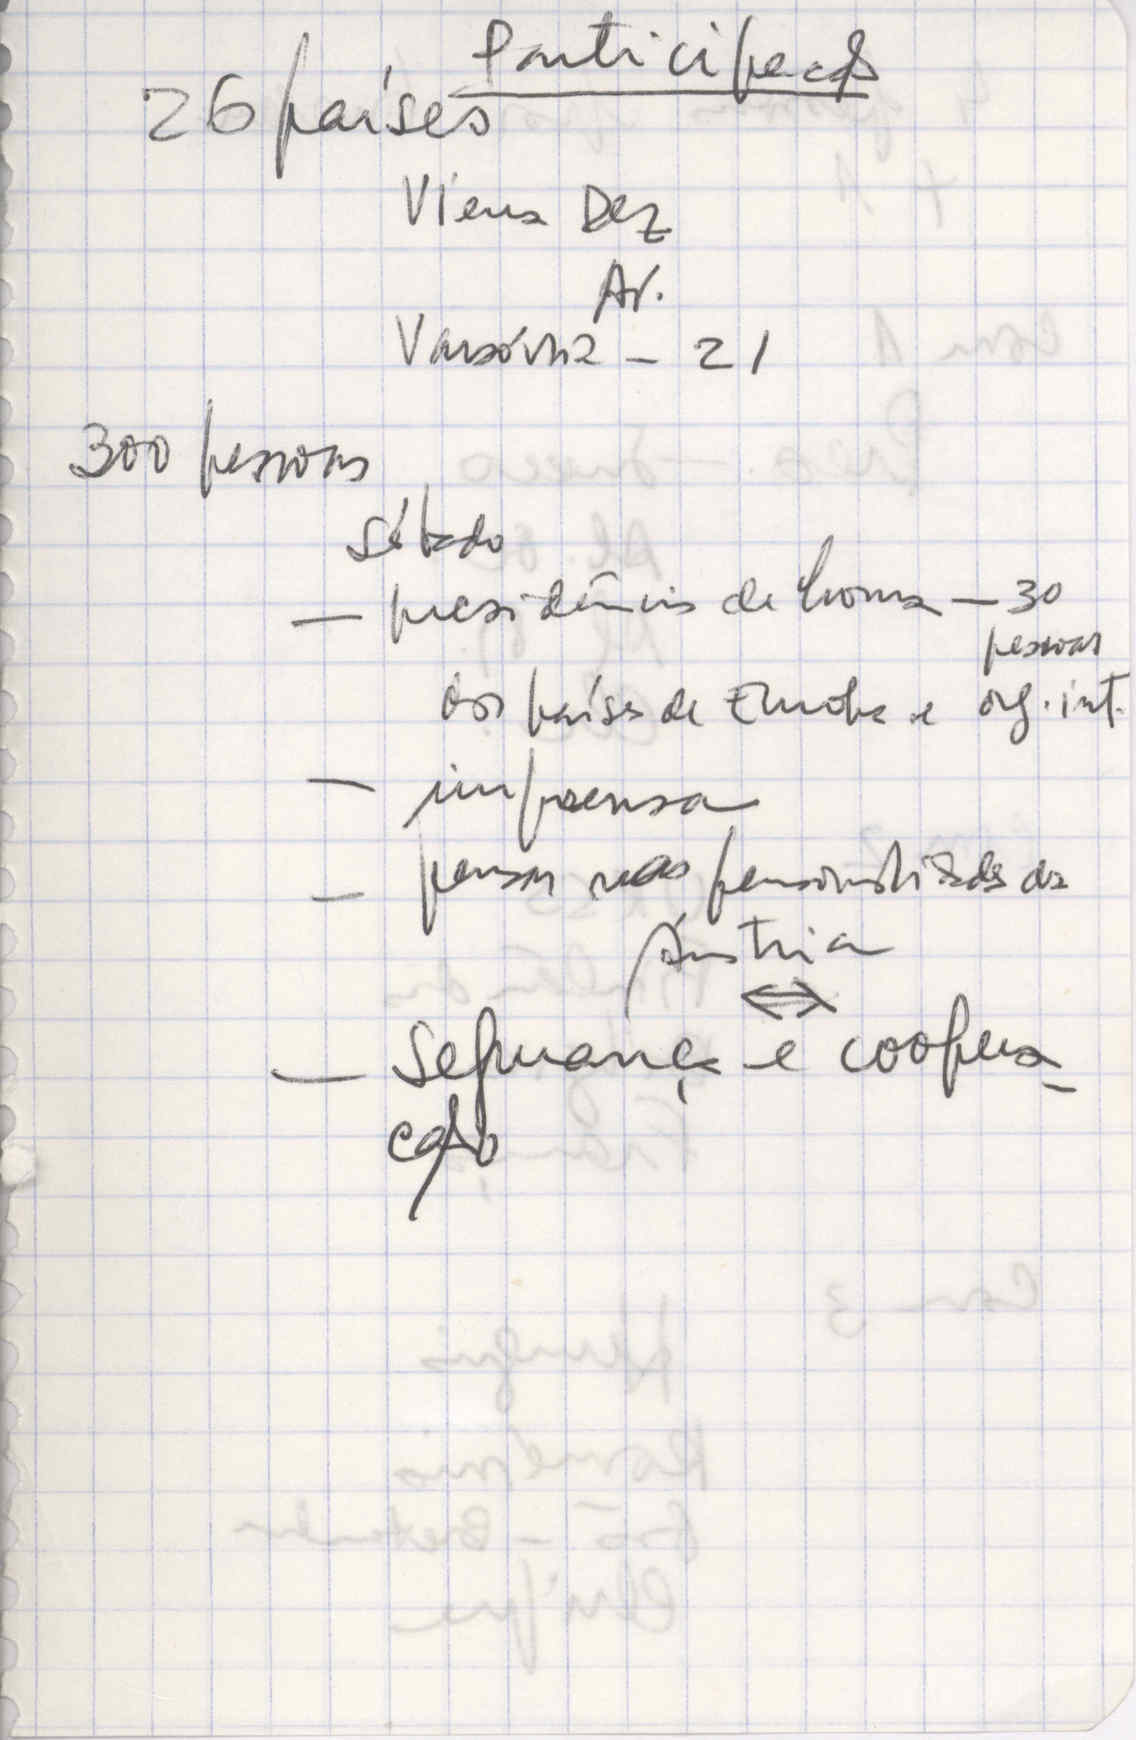 Participação
26 países
Viena Dez
Av.
Varsóvia - 21
300 pessoas
Sábado
- presidência de honra - 30
pessoas
dos países de Europa e org. int.
- imprensa
- pensar nas personalidades da
Áustria
⇔
- Segurança e coopera_
ção